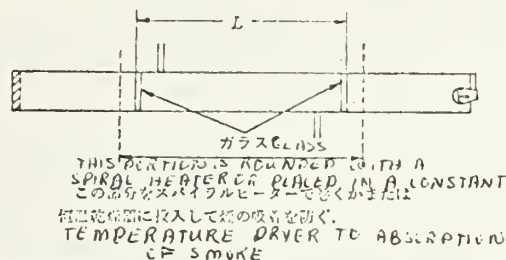 L
ガラス GLASS
THIS PORTION IS ROUNDED WITH A
SPIRAL HEATER OR PLACED IN A CONSTANT
この部分をスパイラルヒーターで巻くかまたは
恒温乾燥器に投入して煙の吸着を防ぐ.
TEMPERATURE DRYER TO ABSORPTION
OF SMOKE